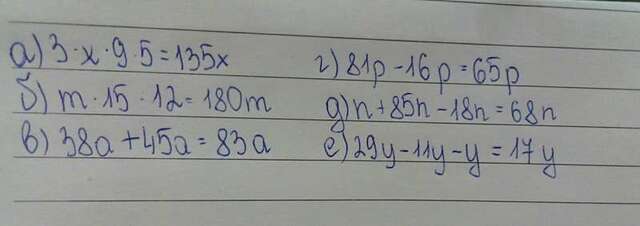 а) 3·x·9·5=135x
б) m·15·12=180m
в) 38a+45a=83a
г) 81p-16p=65p
д) n+85n-18n=68n
е) 29y-11y-y=17y